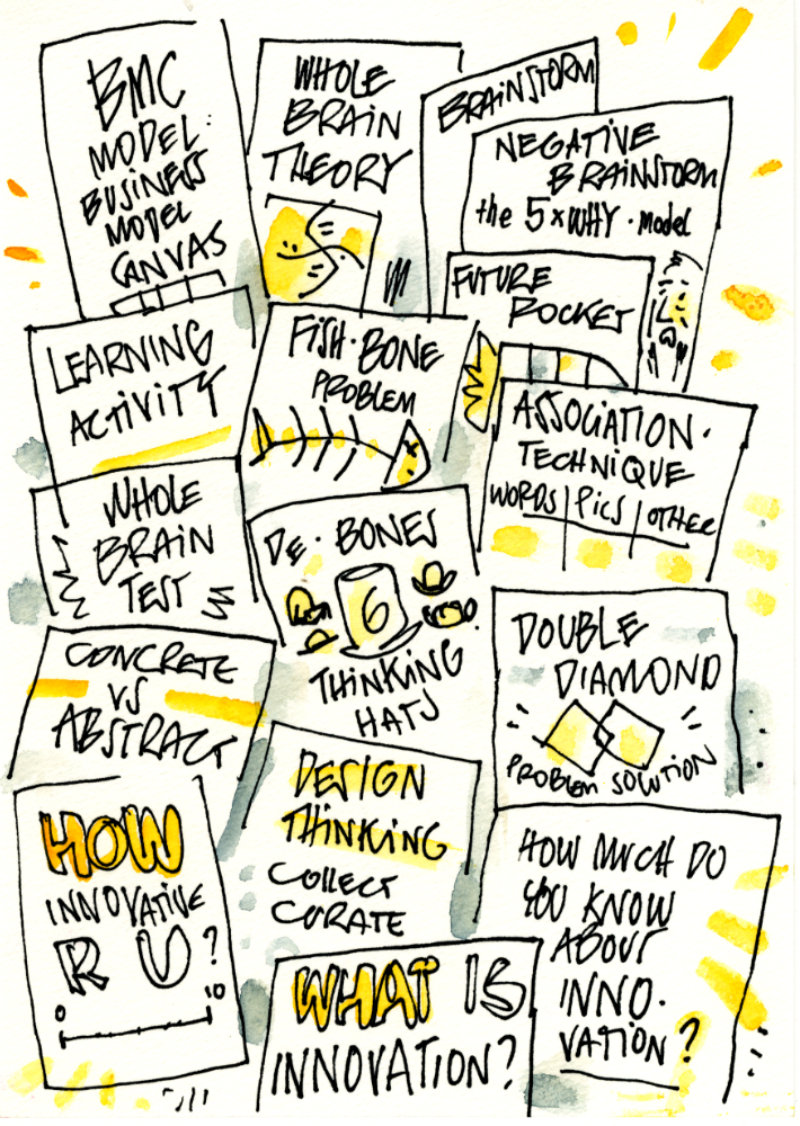 BMC
MODEL:
BUSINESS
MODEL
CANVAS
WHOLE
BRAIN
THEORY
BRAINSTORM
NEGATIVE
BRAINSTORM
the 5xWHY · model
FUTURE
ROCKET
LEARNING
ACTIVITY
FISH·BONE
PROBLEM
ASSOCIATION·
TECHNIQUE
WORDS | PICS | OTHER
WHOLE
BRAIN
TEST
DE·BONES
6
THINKING
HATS
DOUBLE
DIAMOND
PROBLEM SOLUTION
CONCRETE
VS
ABSTRACT
DESIGN
THINKING
COLLECT
CURATE
HOW
INNOVATIVE
R U?
0 10
WHAT IS
INNOVATION?
HOW MUCH DO
YOU KNOW
ABOUT
INNO·
VATION?